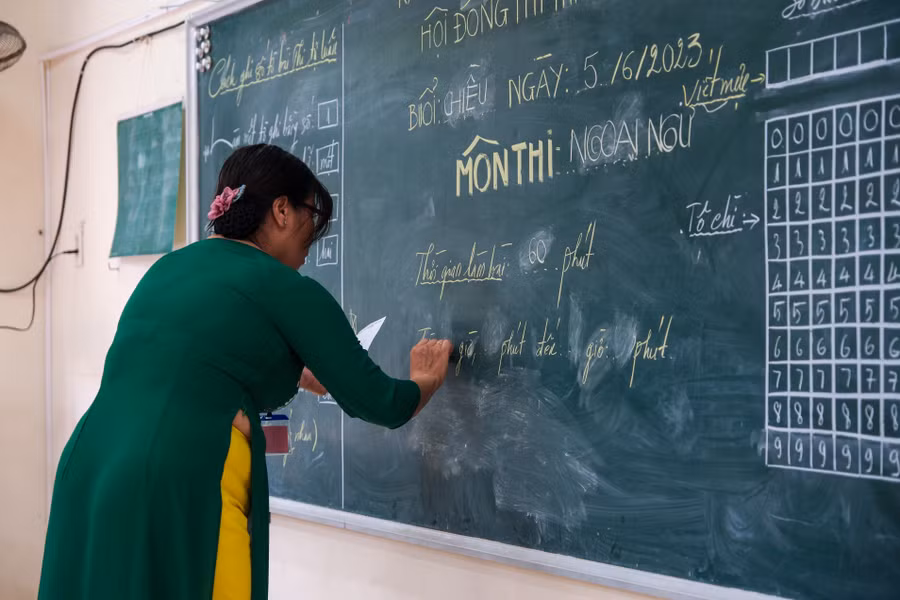 HỘI ĐỒNG THI
BUỔI: CHIỀU NGÀY: 5 /6/2023
MÔN THI: NGOẠI NGỮ
Thời gian làm bài 60 phút
giờ phút đến giờ phút
Cách ghi số tờ bài thi tự luận
1
một
hai
Viết mức →
Tô chì: →
0 0 0 0 0 0
1 1 1 1 1 1
2 2 2 2 2 2
3 3 3 3 3 3
4 4 4 4 4 4
5 5 5 5 5 5
6 6 6 6 6 6
7 7 7 7 7 7
8 8 8 8 8 8
9 9 9 9 9 9